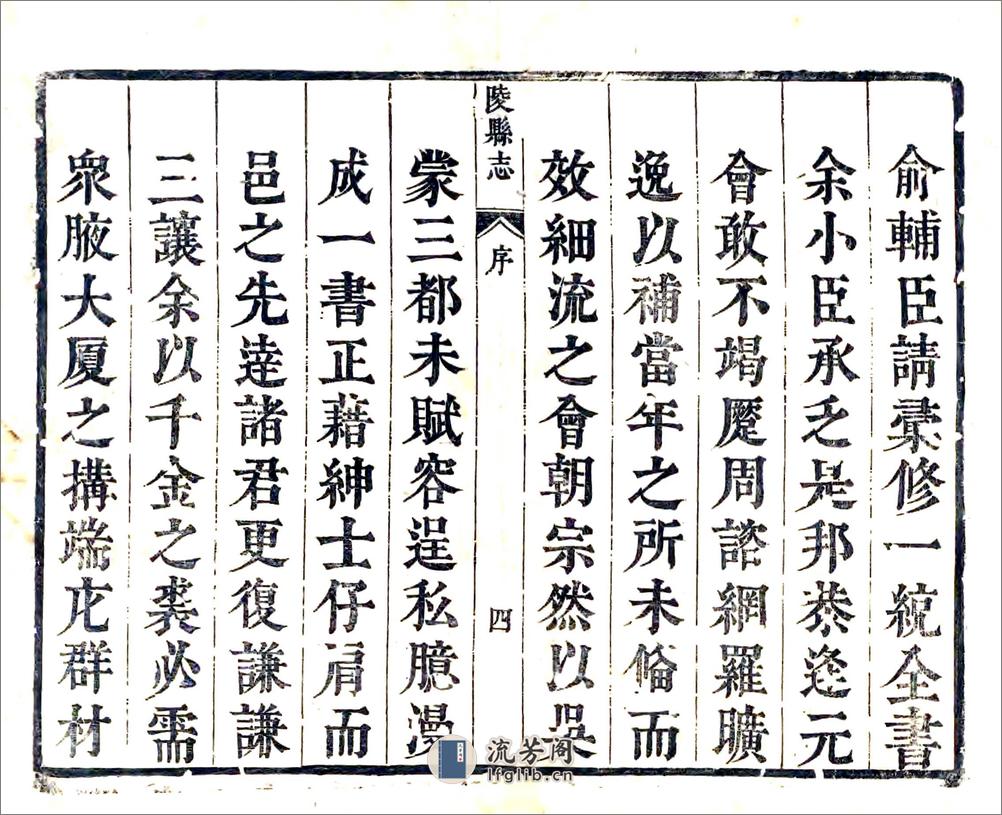 俞輔臣請彙修一統全書
余小臣承乏是邦恭逢元
會敢不竭蹷周諮網羅曠
逸以補當年之所未俻而
效細流之會朝宗然以吳
陵縣志
序
四
蒙三都未賦容逞私臆漫
成一書正藉紳士仔肩而
邑之先逹諸君更復謙謙
三讓余以千金之裘必需
衆腋大厦之搆端庀群材
流芳阁
lfglib.cn